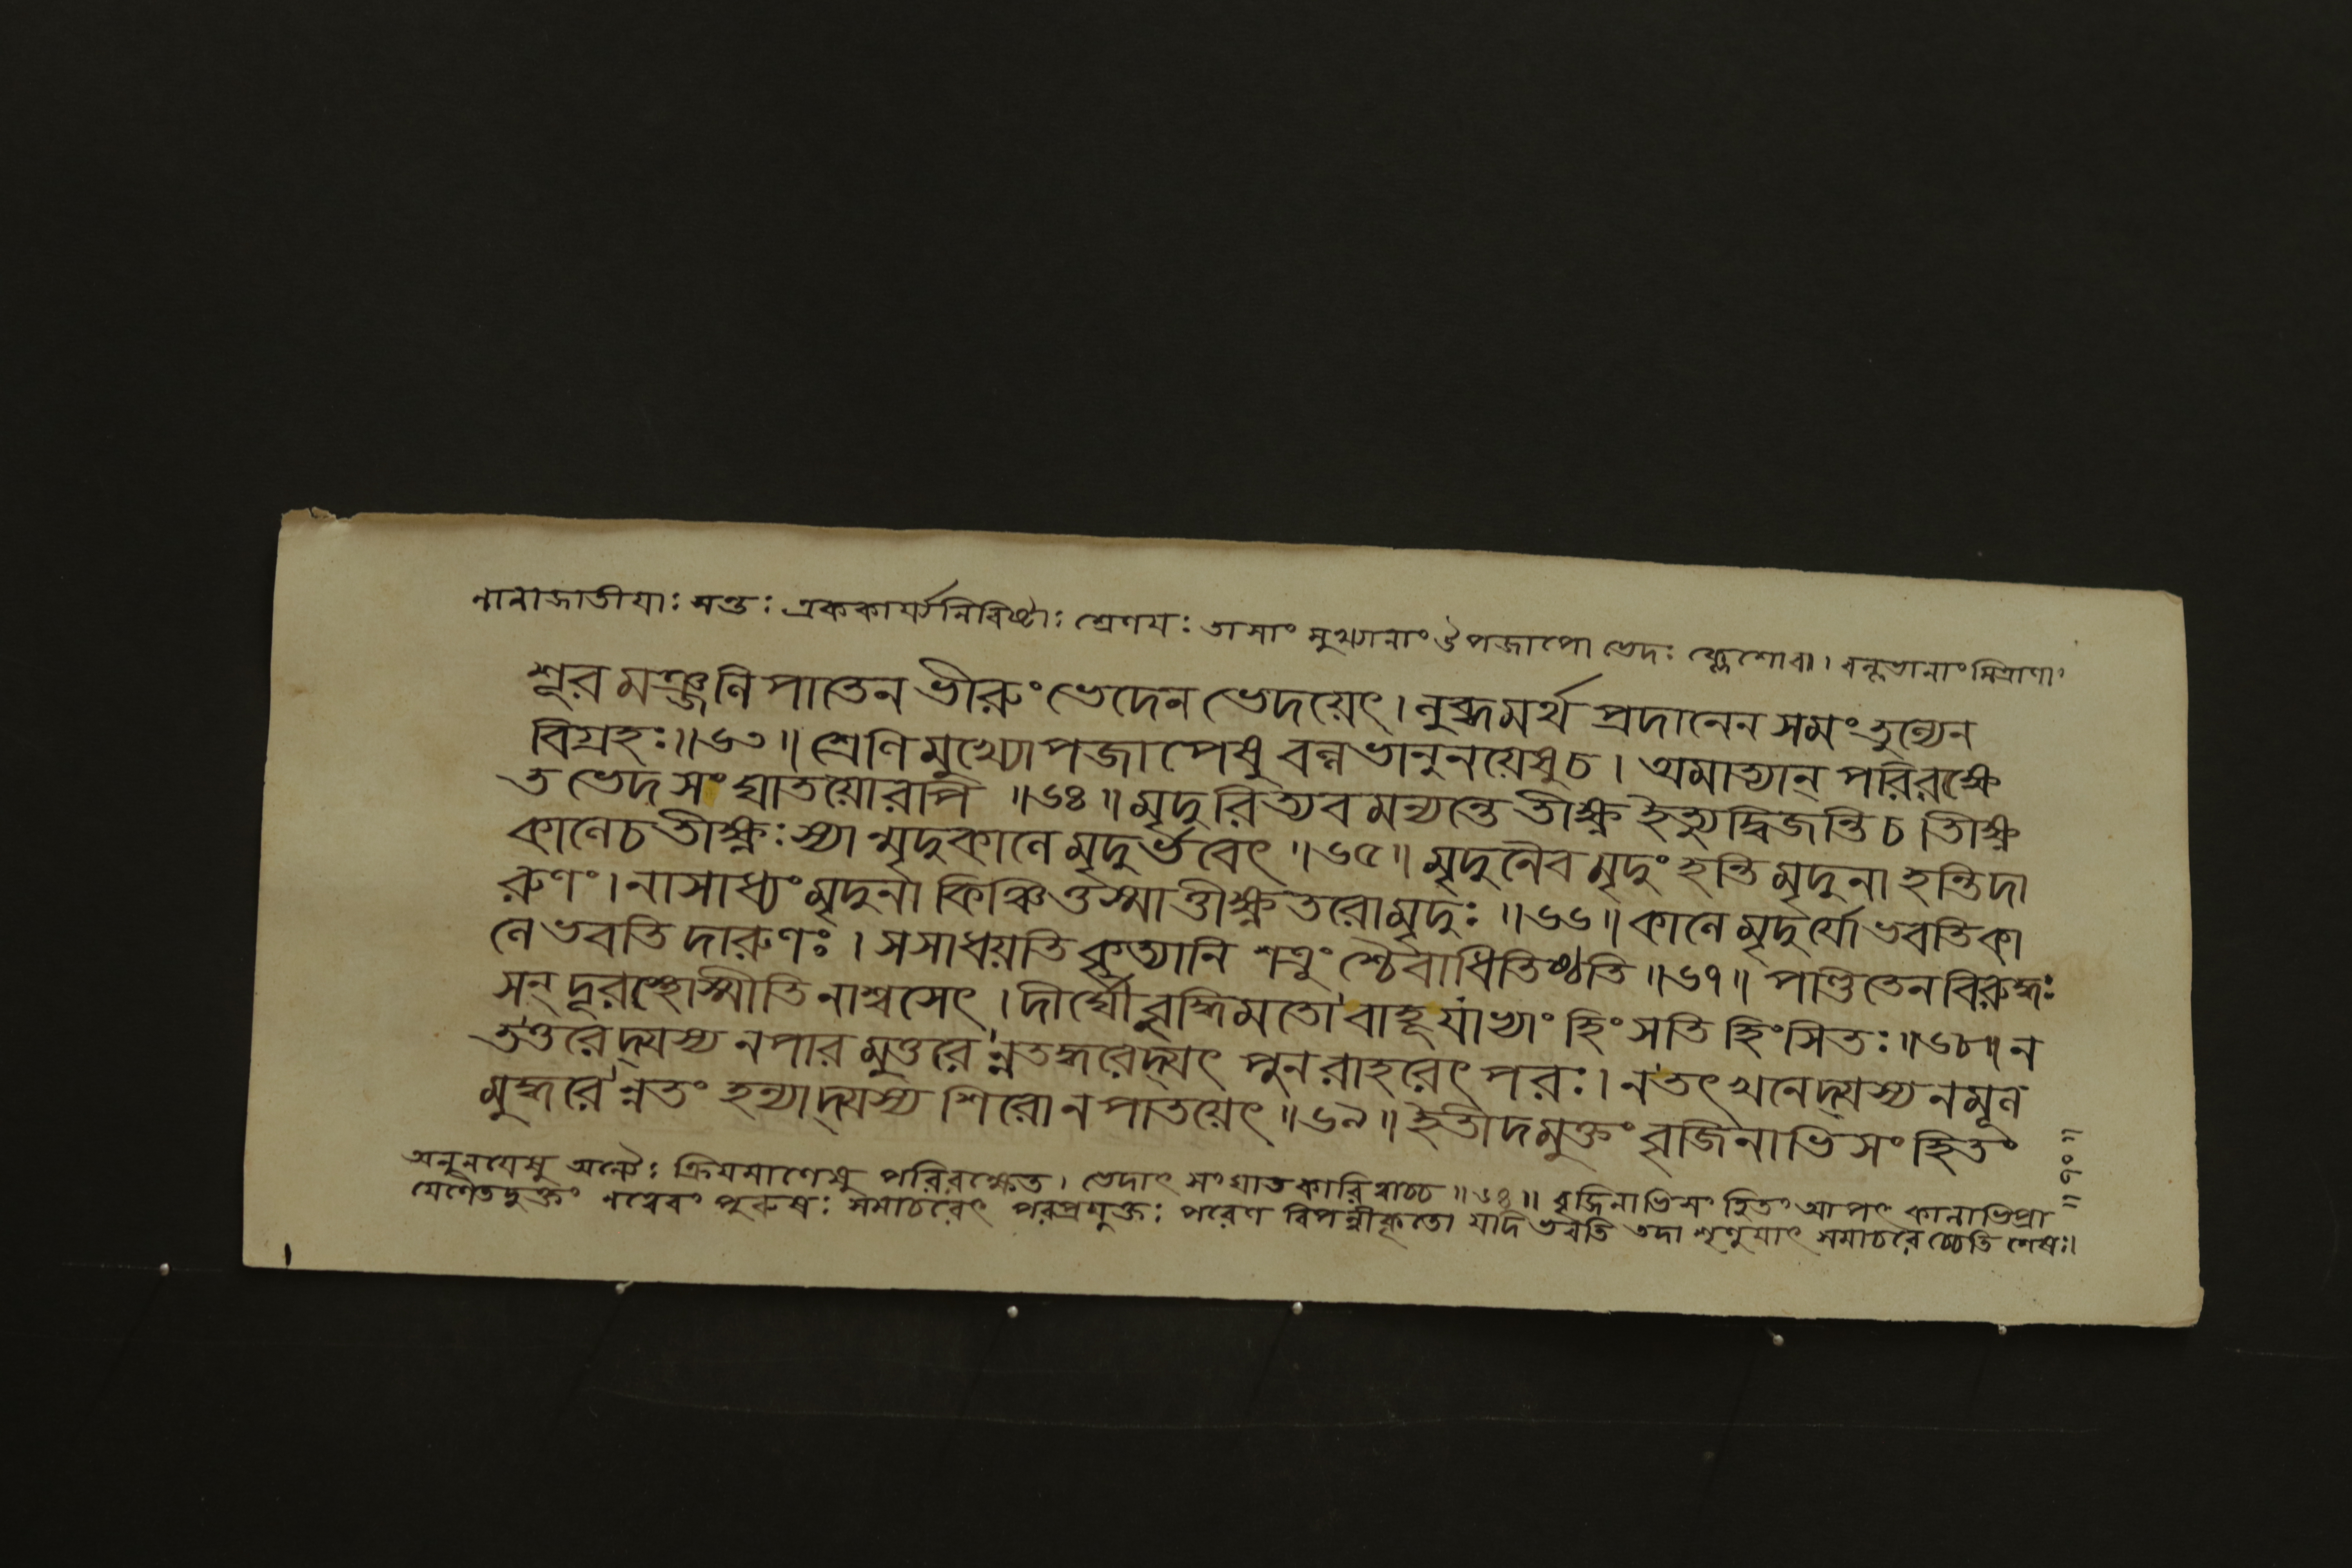 নানাজাতীযাঃ সন্তঃ এককার্য্যনিবিষ্টাঃ শ্রেণযঃ তাসাং মুখ্যানাং উপজাপো ভেদঃ বল্লভানাং মিত্রাণাং
শূরমঞ্জনিপাতেন ভীরুং ভেদেন ভেদয়েৎ। লুব্ধমর্থপ্রদানেন সমং তুল্যেন
বিগ্রহঃ॥৬৩॥ শ্রেণিমুখ্যোপজাপেষু বল্লভানুনয়েষু চ। অমাত্যান্ পরিরক্ষে
ত ভেদসংঘাতয়োরপি ॥৬৪॥ মৃদুরিত্যবমন্যন্তে তীক্ষ্ণ ইত্যুদ্বিজন্তি চ। তীক্ষ্ণ
কালে চ তীক্ষ্ণঃ স্যান্মৃদুকালে মৃদুর্ভবেৎ ॥৬৫॥ মৃদুনৈব মৃদুং হন্তি মৃদুনা হন্তি দা
রুণং। নাসাধ্যং মৃদুনা কিঞ্চিত্তস্মাত্তীক্ষ্ণতরো মৃদুঃ ॥৬৬॥ কালে মৃদুর্যো ভবতি কা
লে ভবতি দারুণঃ। স সাধয়তি কৃত্যানি শত্রুংশ্চৈবাধিতিষ্ঠতি ॥৬৭॥ পণ্ডিতেন বিরুদ্ধঃ
সন্ দূরস্থোস্মীতি নাশ্বসেৎ। দীর্ঘৌ বুদ্ধিমতো বাহূ যাভ্যাং হিংসতি হিংসিতঃ॥৬৮॥ ন
তত্তরেদ্যস্য ন পারমুত্তরেন্ন তদ্ধরেদ্যৎ পুনরাহরেৎ পরঃ। ন তৎ খনেদ্যস্য ন মূল
মুদ্ধরেন্ন তং হন্যাদ্যস্য শিরো ন পাতয়েৎ ॥৬৯॥ ইতীদমুক্তং বৃজিনাভিসংহিতং
॥৭০॥
অনুনযেষু অন্যৈঃ ক্রিযমাণেষু পরিরক্ষেত। ভেদাৎ সংঘাতকারিত্বাচ্চ ॥৬৪॥ বৃজিনাভিসংহিতং আপৎকালাভিপ্রা
যেণৈতদুক্তং নত্বেবং পুরুষঃ সমাচরেৎ পরপ্রযুক্তঃ পরেণ বিপন্নীকৃতো যদি ভবতি তদা শৃণুযাৎ সমাচরেচ্চেতি শেষঃ।